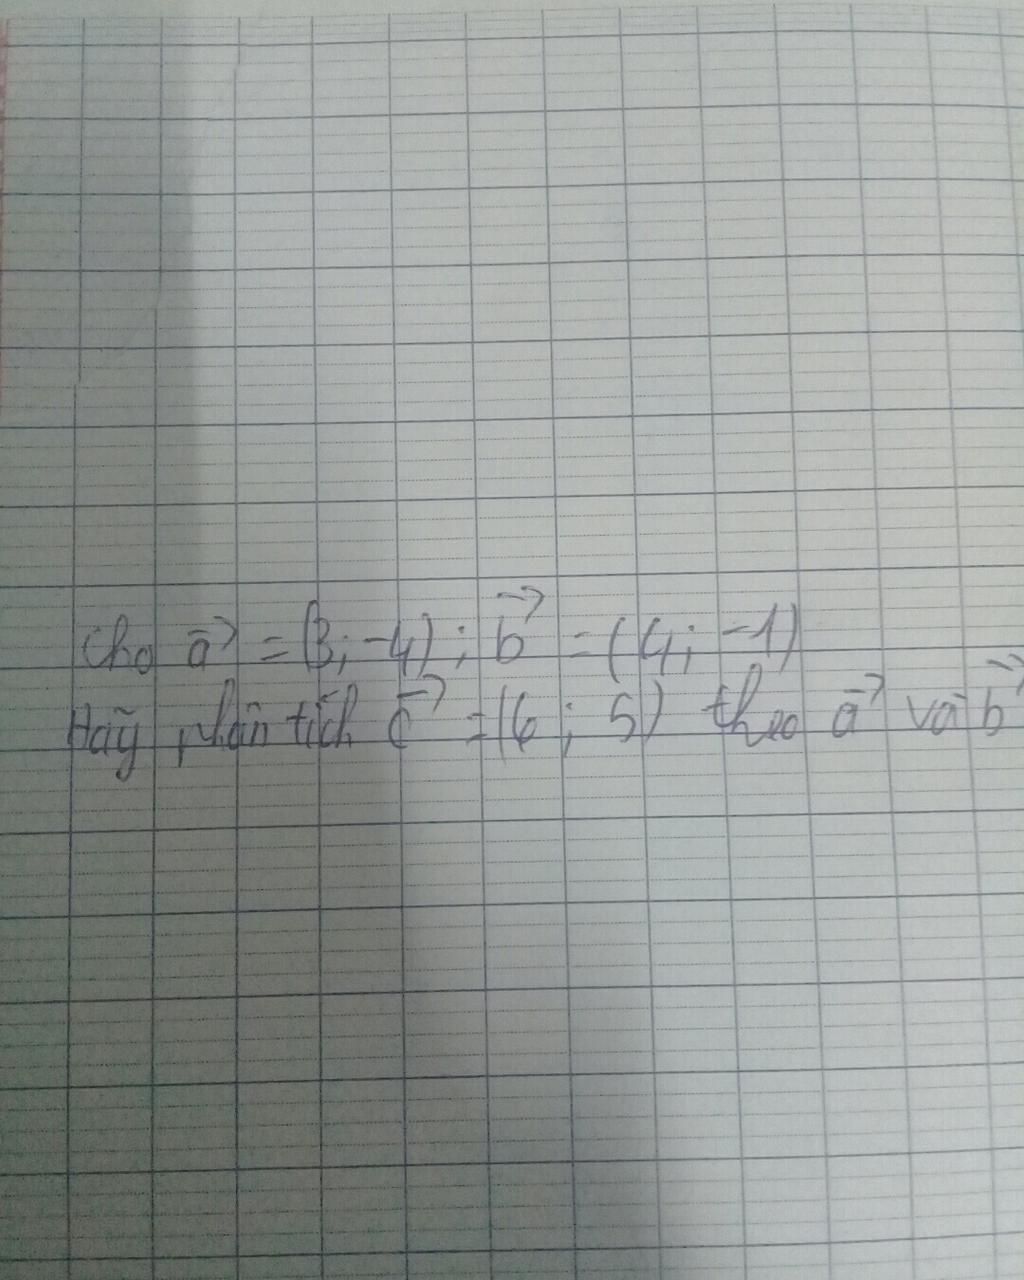 Cho a⃗ = (3; -4); b⃗ = (4; -1)
Hãy phân tích c⃗ = (6; 5) theo a⃗ và b⃗